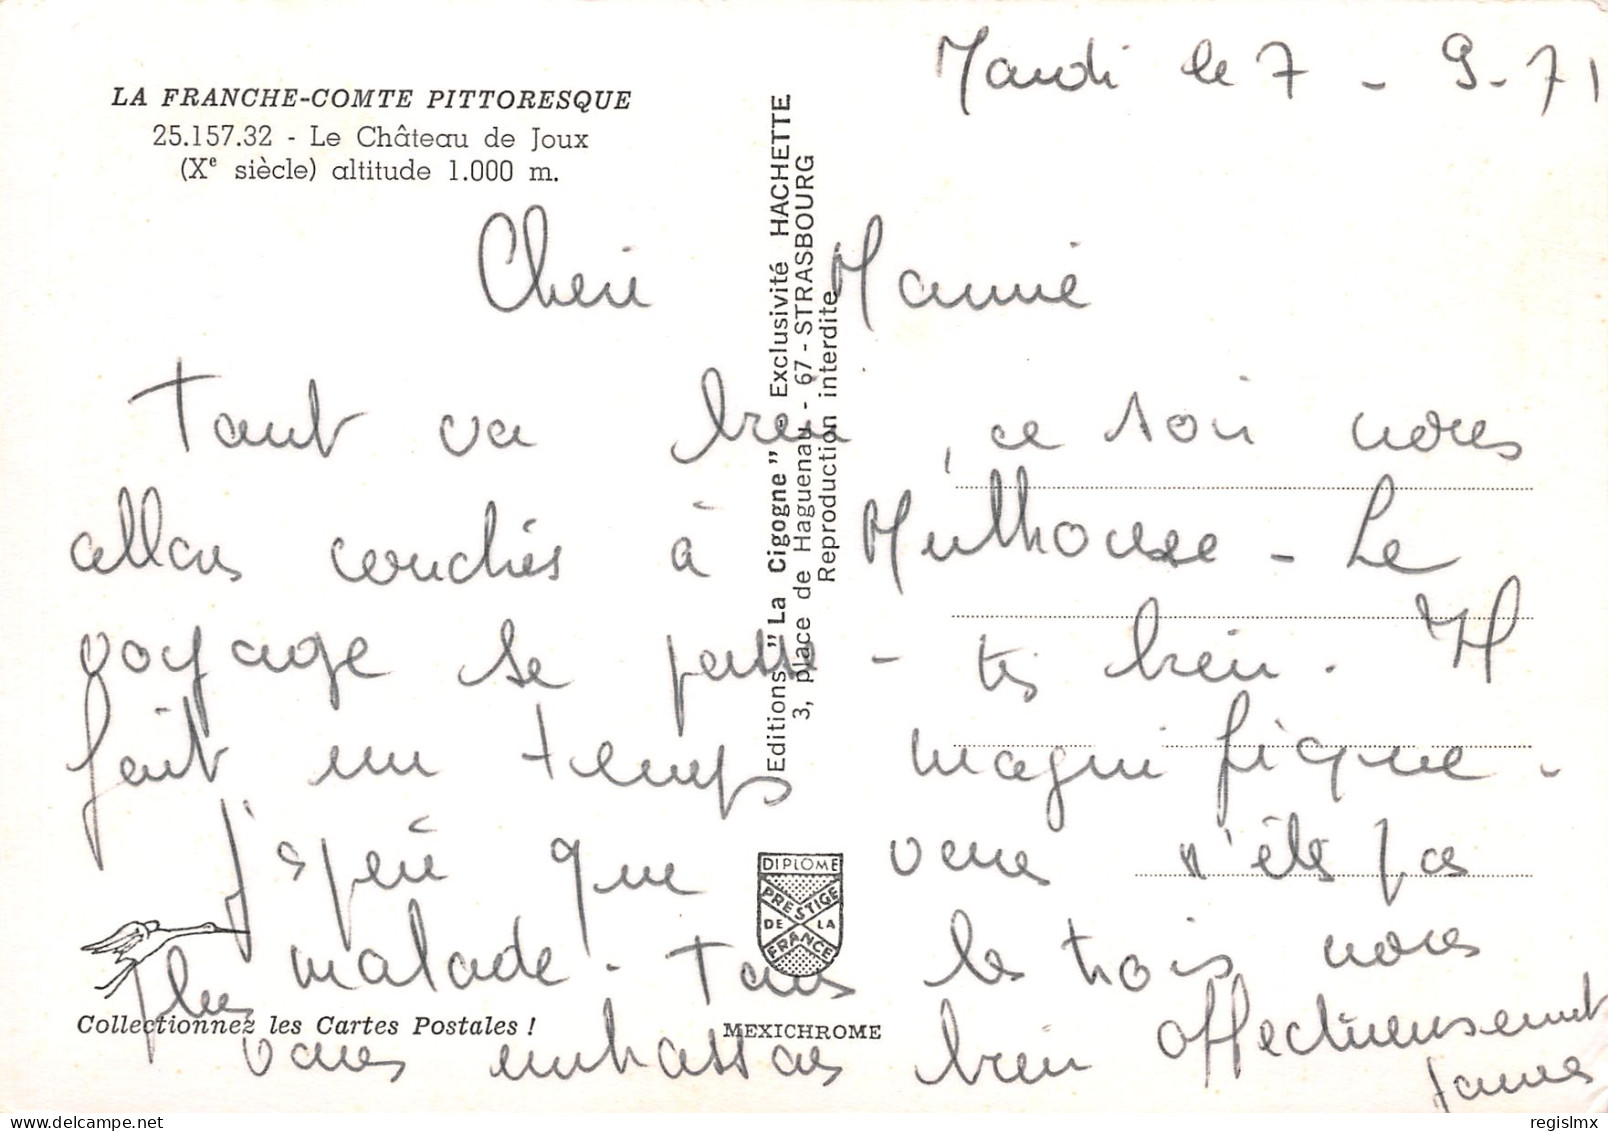 Mardi le 7 - 9 - 71
LA FRANCHE-COMTE PITTORESQUE
25.157.32 - Le Château de Joux
(Xe siècle) altitude 1.000 m.
Cheri Mamie
Tout va bien, ce soir nous
allons couchés à Mulhouse - Le
voyage se passe - très bien. Il
fait un temps magnifique -
J'espère que vous n'êtes pas
plus malade - Tous les trois nous
vous embrassons bien affectueusement
Editions "La Cigogne" - Exclusivité HACHETTE
3, place de Haguenau - 67 - STRASBOURG
Reproduction interdite
DIPLOME
PRESTIGE
DE LA
FRANCE
Collectionnez les Cartes Postales !
MEXICHROME
regislmx